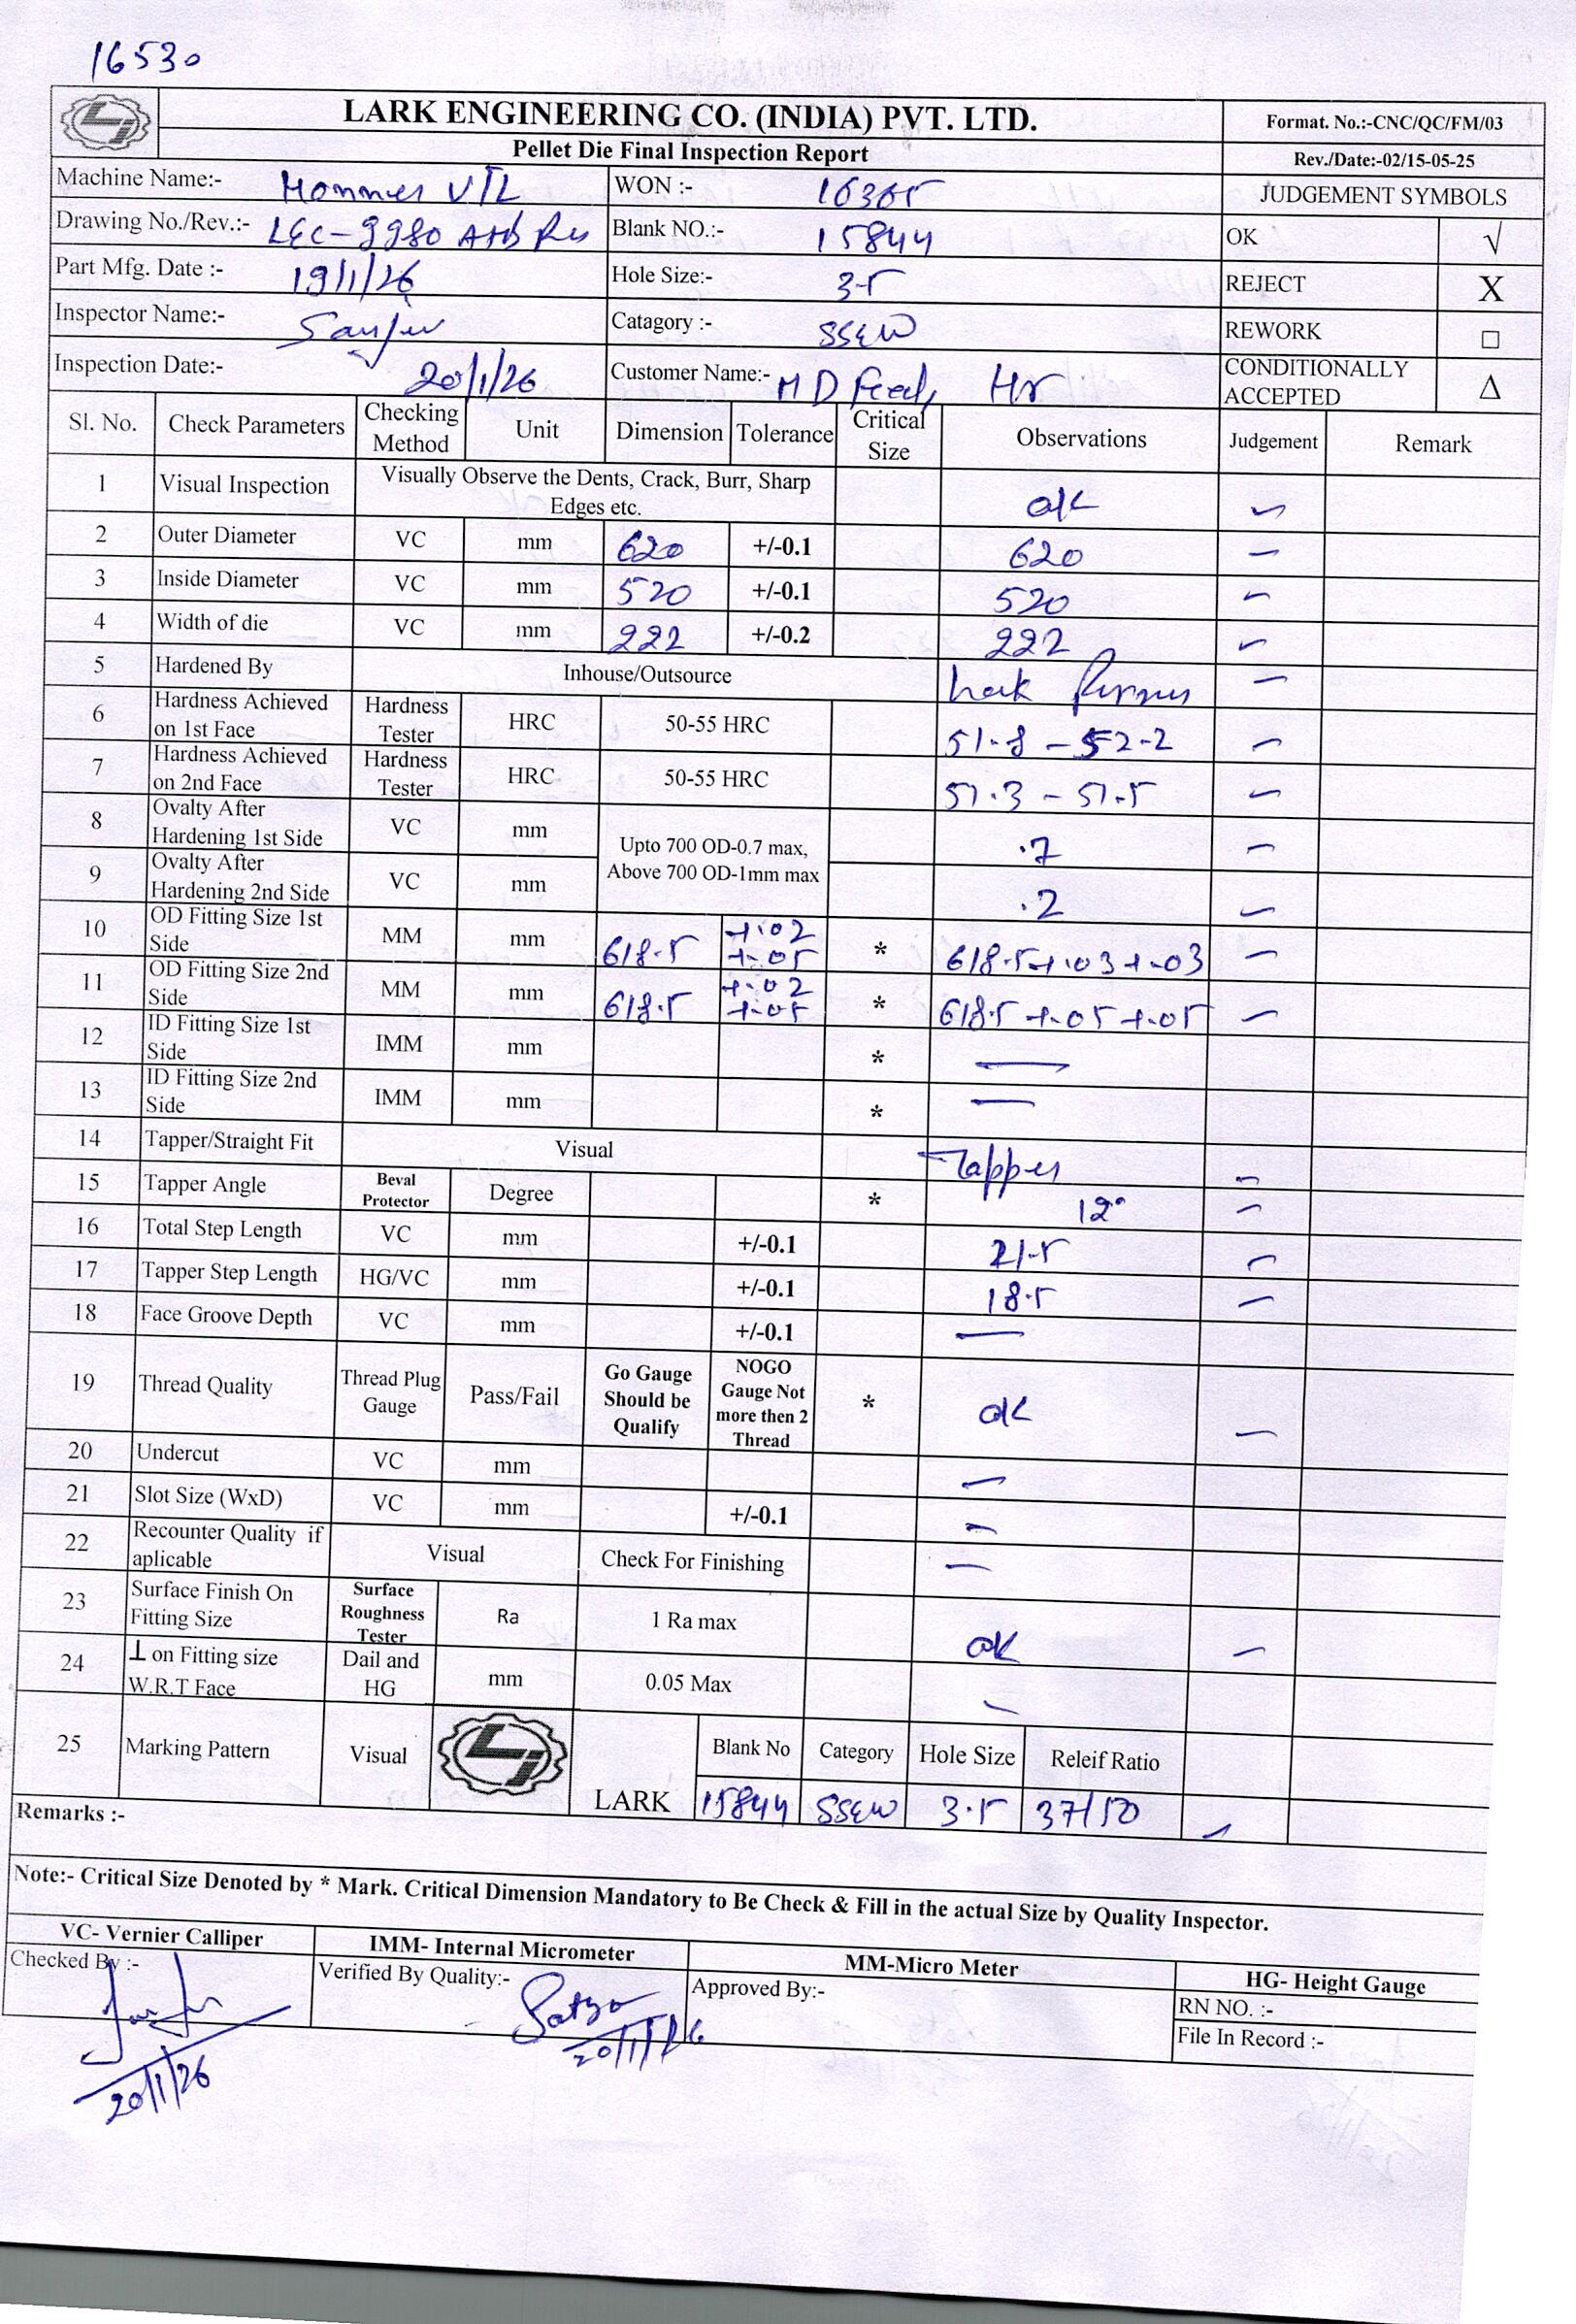 16530
LARK ENGINEERING CO. (INDIA) PVT. LTD.
Format. No.:-CNC/QC/FM/03
Pellet Die Final Inspection Report
Rev./Date:-02/15-05-25
Machine Name:- VTL WON :- 16365 JUDGEMENT SYMBOLS
Drawing No./Rev.:- LEC-9980 Blank NO.:- 15844 OK √
Part Mfg. Date :- 19/1/26 Hole Size:- 3.5 REJECT X
Inspector Name:- Sanjeev Catagory :- SSEW REWORK □
Inspection Date:- 20/1/26 Customer Name:- M D Feed, Hr CONDITIONALLY ACCEPTED Δ
Sl. No. Check Parameters Checking Method Unit Dimension Tolerance Critical Size Observations Judgement Remark
1 Visual Inspection Visually Observe the Dents, Crack, Burr, Sharp Edges etc. ok
2 Outer Diameter VC mm 620 +/-0.1 620
3 Inside Diameter VC mm 520 +/-0.1 520
4 Width of die VC mm 222 +/-0.2 222
5 Hardened By Inhouse/Outsource
6 Hardness Achieved on 1st Face Hardness Tester HRC 50-55 HRC 51.8 - 52.2
7 Hardness Achieved on 2nd Face Hardness Tester HRC 50-55 HRC 51.3 - 51.5
8 Ovalty After Hardening 1st Side VC mm Upto 700 OD-0.7 max, Above 700 OD-1mm max .7
9 Ovalty After Hardening 2nd Side VC mm .2
10 OD Fitting Size 1st Side MM mm 618.5 +.02 +.05 * 618.5 +.03 +.03
11 OD Fitting Size 2nd Side MM mm 618.5 +.02 +.05 * 618.5 +.05 +.05
12 ID Fitting Size 1st Side IMM mm * —
13 ID Fitting Size 2nd Side IMM mm * —
14 Tapper/Straight Fit Visual Tapper
15 Tapper Angle Beval Protector Degree * 12°
16 Total Step Length VC mm +/-0.1 21.5
17 Tapper Step Length HG/VC mm +/-0.1 18.5
18 Face Groove Depth VC mm +/-0.1 —
19 Thread Quality Thread Plug Gauge Pass/Fail Go Gauge Should be Qualify NOGO Gauge Not more then 2 Thread * ok
20 Undercut VC mm —
21 Slot Size (WxD) VC mm +/-0.1 —
22 Recounter Quality if aplicable Visual Check For Finishing —
23 Surface Finish On Fitting Size Surface Roughness Tester Ra 1 Ra max ok
24 ⊥ on Fitting size W.R.T Face Dail and HG mm 0.05 Max —
25 Marking Pattern Visual LARK Blank No Category Hole Size Releif Ratio
15844 SSEW 3.5 37/50
Remarks :-
Note:- Critical Size Denoted by * Mark. Critical Dimension Mandatory to Be Check & Fill in the actual Size by Quality Inspector.
VC- Vernier Calliper IMM- Internal Micrometer MM-Micro Meter HG- Height Gauge
Checked By :- Verified By Quality:- Satya Approved By:- RN NO. :-
File In Record :-
20/1/26 20/1/26